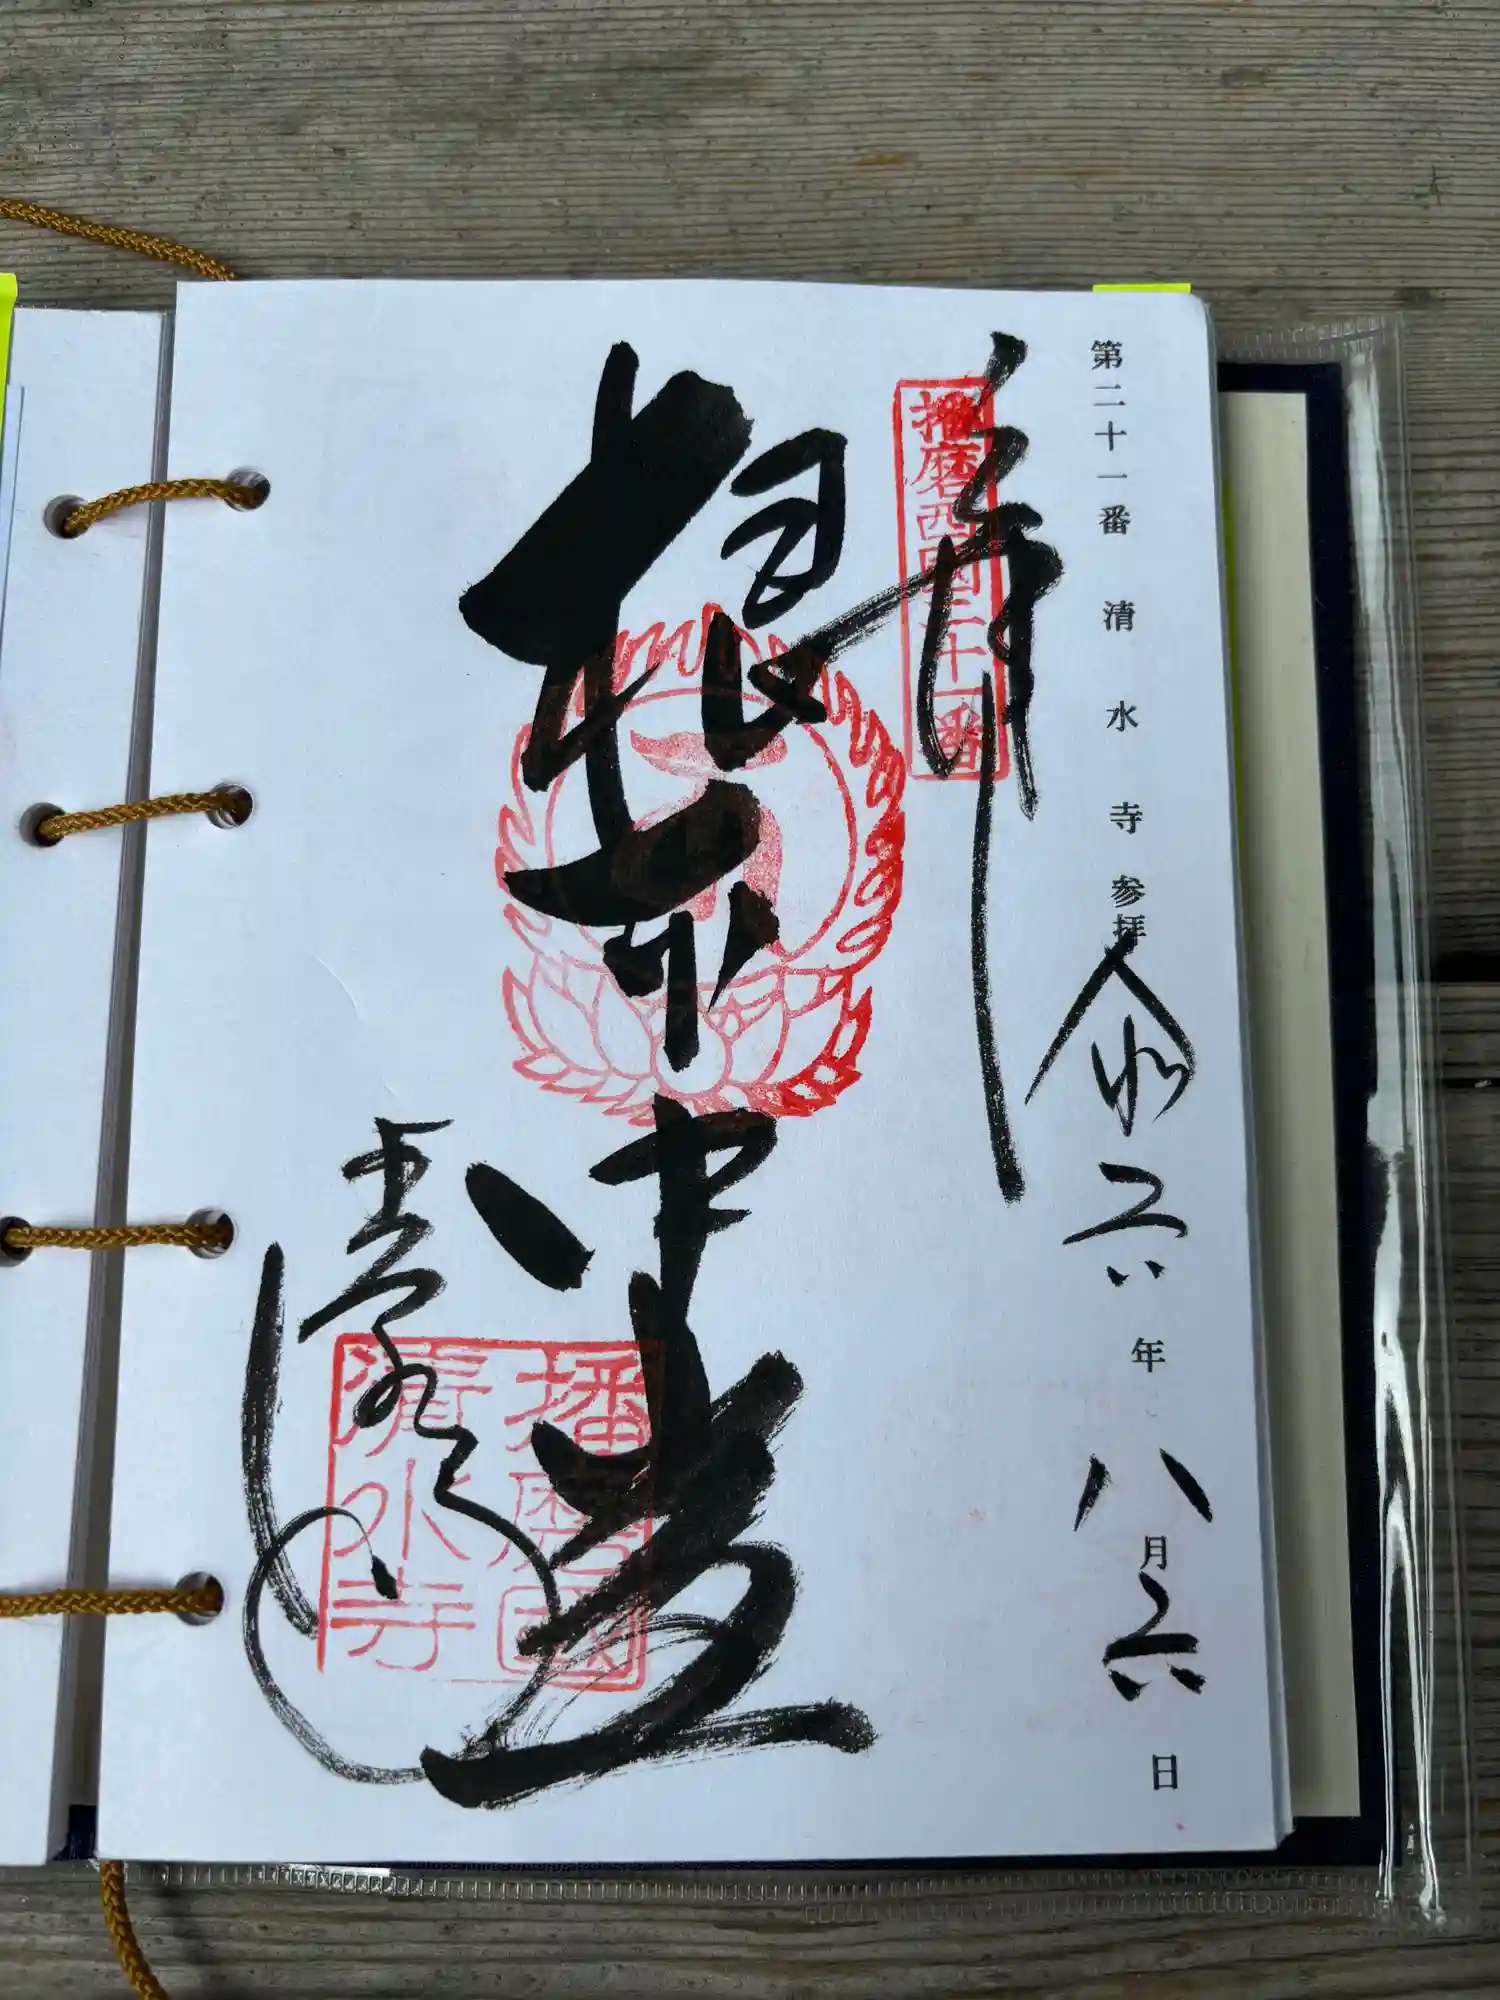 第二十一番 清水寺 参拝 令和六年八月六日
奉拝
播磨西国二十一番
根本中堂
播磨國
清水寺